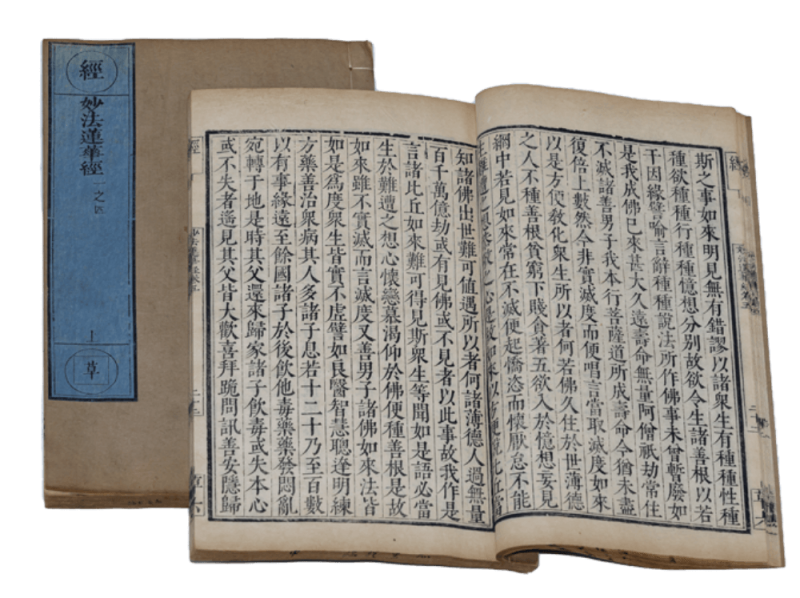 經
妙法蓮華經
一之
草
斯之事如來明見無有錯謬以諸衆生有種種性種
種欲種種行種種憶想分別故欲令生諸善根以若
干因緣譬喻言辭種種說法所作佛事未曾暫廢如
是我成佛已來甚大久遠壽命無量阿僧祇劫常住
不滅諸善男子我本行菩薩道所成壽命今猶未盡
復倍上數然今非實滅度而便唱言當取滅度如來
以是方便敎化衆生所以者何若佛久住於世薄德
之人不種善根貧窮下賤貪著五欲入於憶想妄見
網中若見如來常在不滅便起憍恣而懷厭怠不能
生難遭之想恭敬之心是故如來以方便說比丘當
知諸佛出世難可值遇所以者何諸薄德人過無量
百千萬億劫或有見佛或不見者以此事故我作是
言諸比丘如來難可得見斯衆生等聞如是語必當
生於難遭之想心懷戀慕渴仰於佛便種善根是故
如來雖不實滅而言滅度又善男子諸佛如來法皆
如是爲度衆生皆實不虛譬如良醫智慧聰達明練
方藥善治衆病其人多諸子息若十二十乃至百數
以有事緣遠至餘國諸子於後飲他毒藥藥發悶亂
宛轉于地是時其父還來歸家諸子飲毒或失本心
或不失者遙見其父皆大歡喜拜跪問訊善安隱歸
經